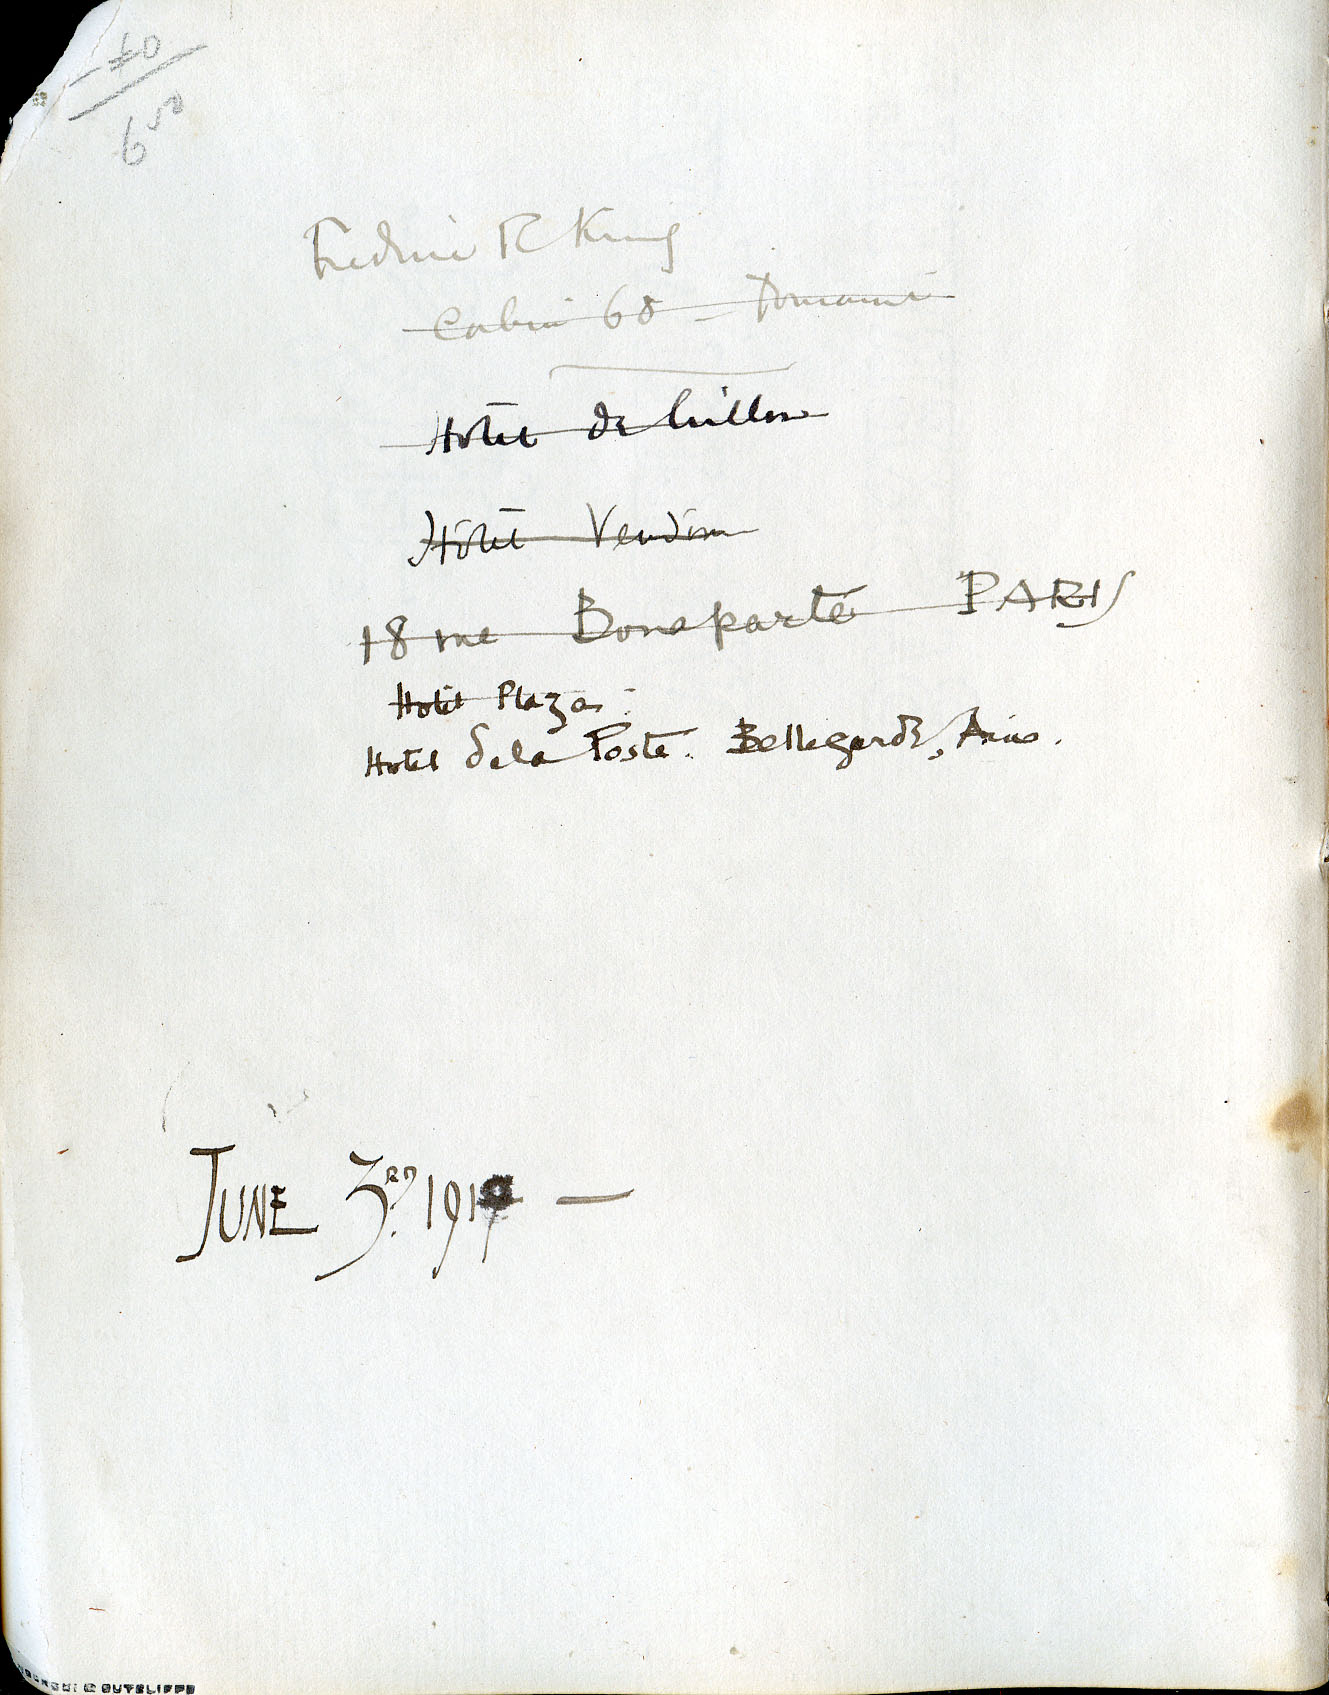 40
6 50
Frederic R King
Cabin 68 –
Hotel de Crillon
Hotel Vendome
18 rue Bonaparte PARIS
Hotel Plaza
Hotel de la Poste. Bellegarde, Ain.
JUNE 3RD. 1919 –